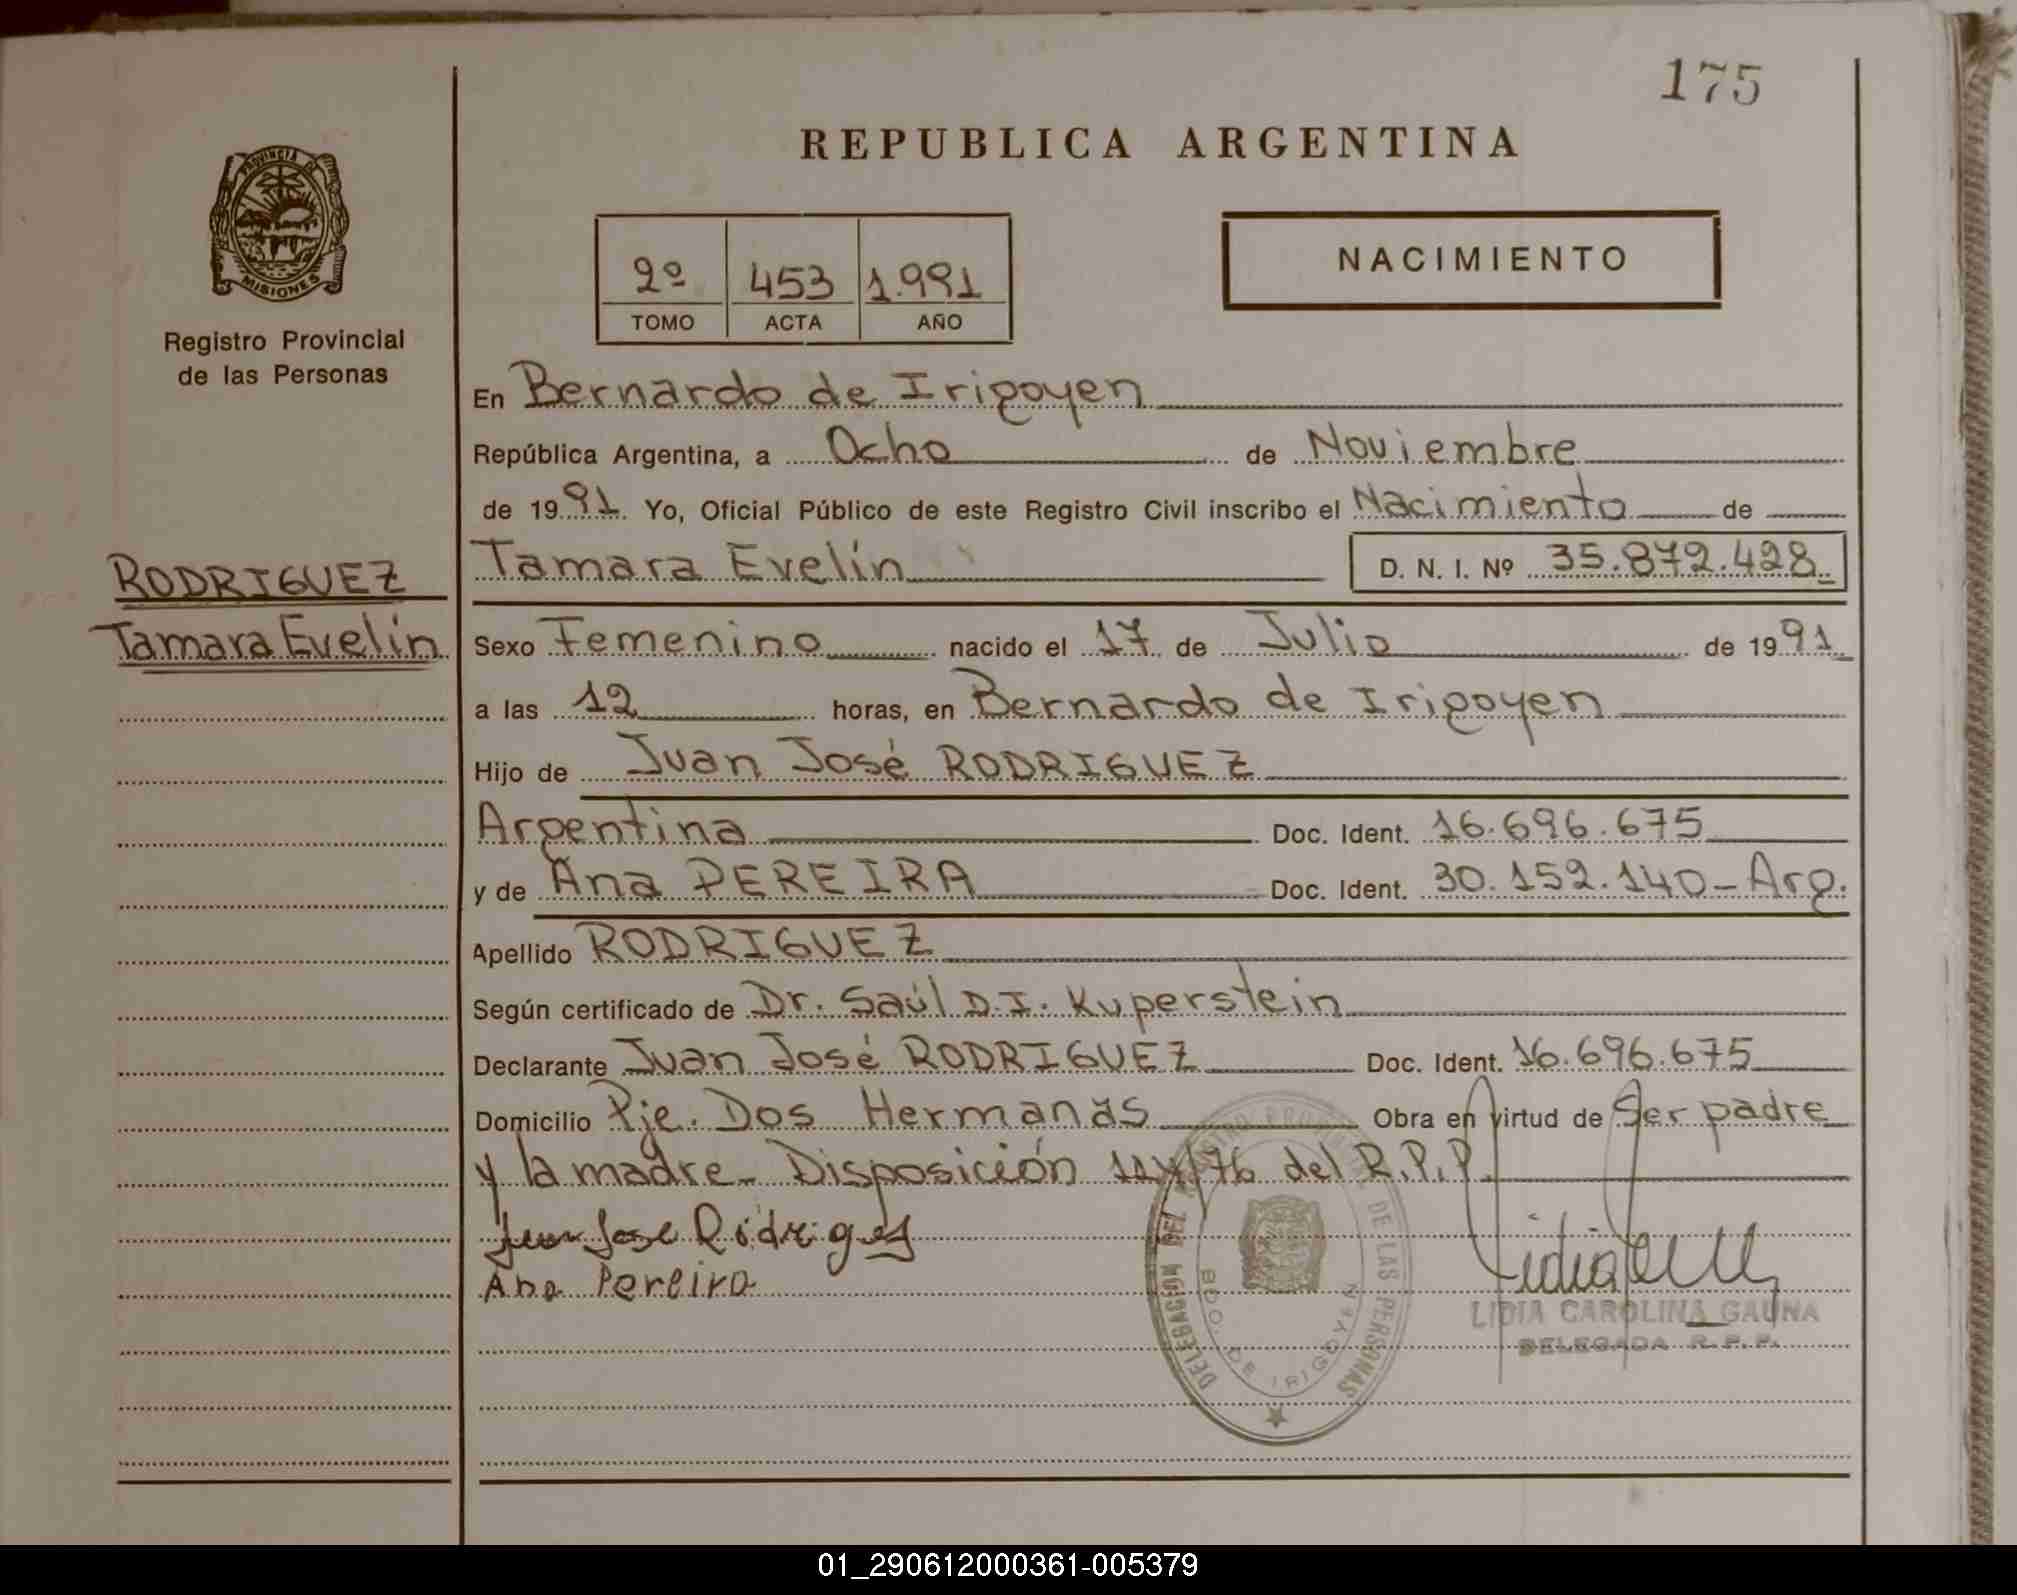 175
REPUBLICA ARGENTINA
PROVINCIA DE
MISIONES
Registro Provincial
de las Personas
2º 453 1.991
TOMO ACTA AÑO
NACIMIENTO
En Bernardo de Irigoyen
República Argentina, a Ocho de Noviembre
de 1991 Yo, Oficial Público de este Registro Civil inscribo el Nacimiento de
Tamara Evelín D. N. I. Nº 35.872.428
RODRIGUEZ
Tamara Evelín
Sexo Femenino nacido el 17 de Julio de 1991
a las 12 horas, en Bernardo de Irigoyen
Hijo de Juan José RODRIGUEZ
Argentina Doc. Ident. 16.696.675
y de Ana PEREIRA Doc. Ident. 30.152.140 - Arg.
Apellido RODRIGUEZ
Según certificado de Dr. Saúl D.I. Kuperstein
Declarante Juan José RODRIGUEZ Doc. Ident. 16.696.675
Domicilio Pje. Dos Hermanas Obra en virtud de Ser padre
y la madre. Disposición /76 del R.P.P.
Juan Jose Rodrigez
Ana Pereira
DELEGACION DEL REGISTRO PROVINCIAL DE LAS PERSONAS
BDO. DE IRIGOYEN
LIDIA CAROLINA GAUNA
DELEGADA R.P.P.
01_290612000361-005379